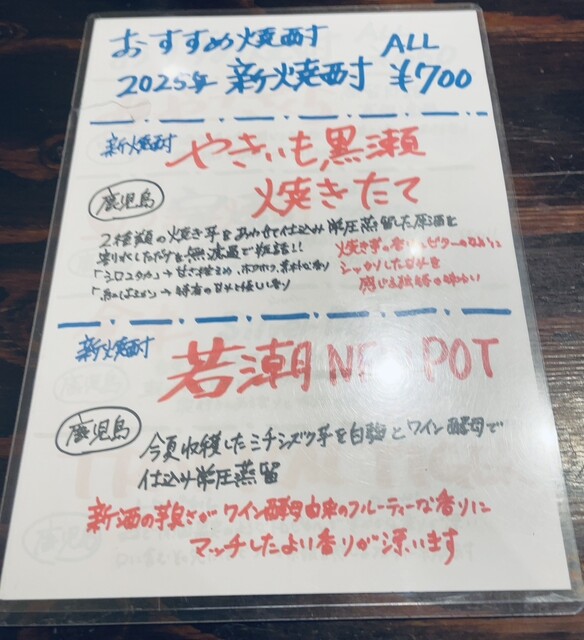 おすすめ焼酎 ALL
2025年 新焼酎 ¥700
新焼酎 やきいも黒瀬
焼きたて
鹿児島
2種類の焼き芋をあわせて仕込み 常圧蒸留した原酒を
割り水しただけを無濾過で瓶詰!!
「シロユタカ」→甘さ控えめ、ホクホク、素朴な香り
「紅はるか」→ 蜂蜜の甘みと優しい香り
焼き芋の香りとビターのように
しっかりした甘みを
感じる独特の味わい
新焼酎 若潮 NE POT
鹿児島
今夏収穫したミチシズク芋を白麹とワイン酵母で
仕込み常圧蒸留
新酒の良さがワイン酵母由来のフルーティーな香りに
マッチしたよい香りが漂います